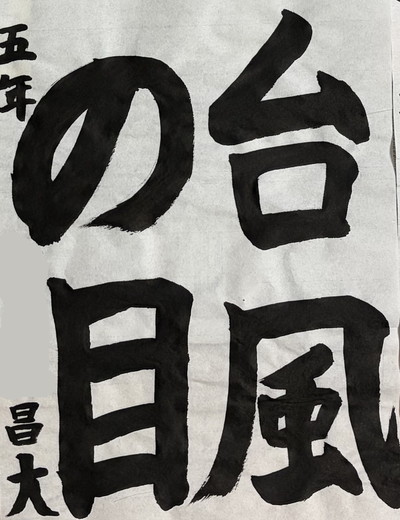 台風
の目
五年
昌大